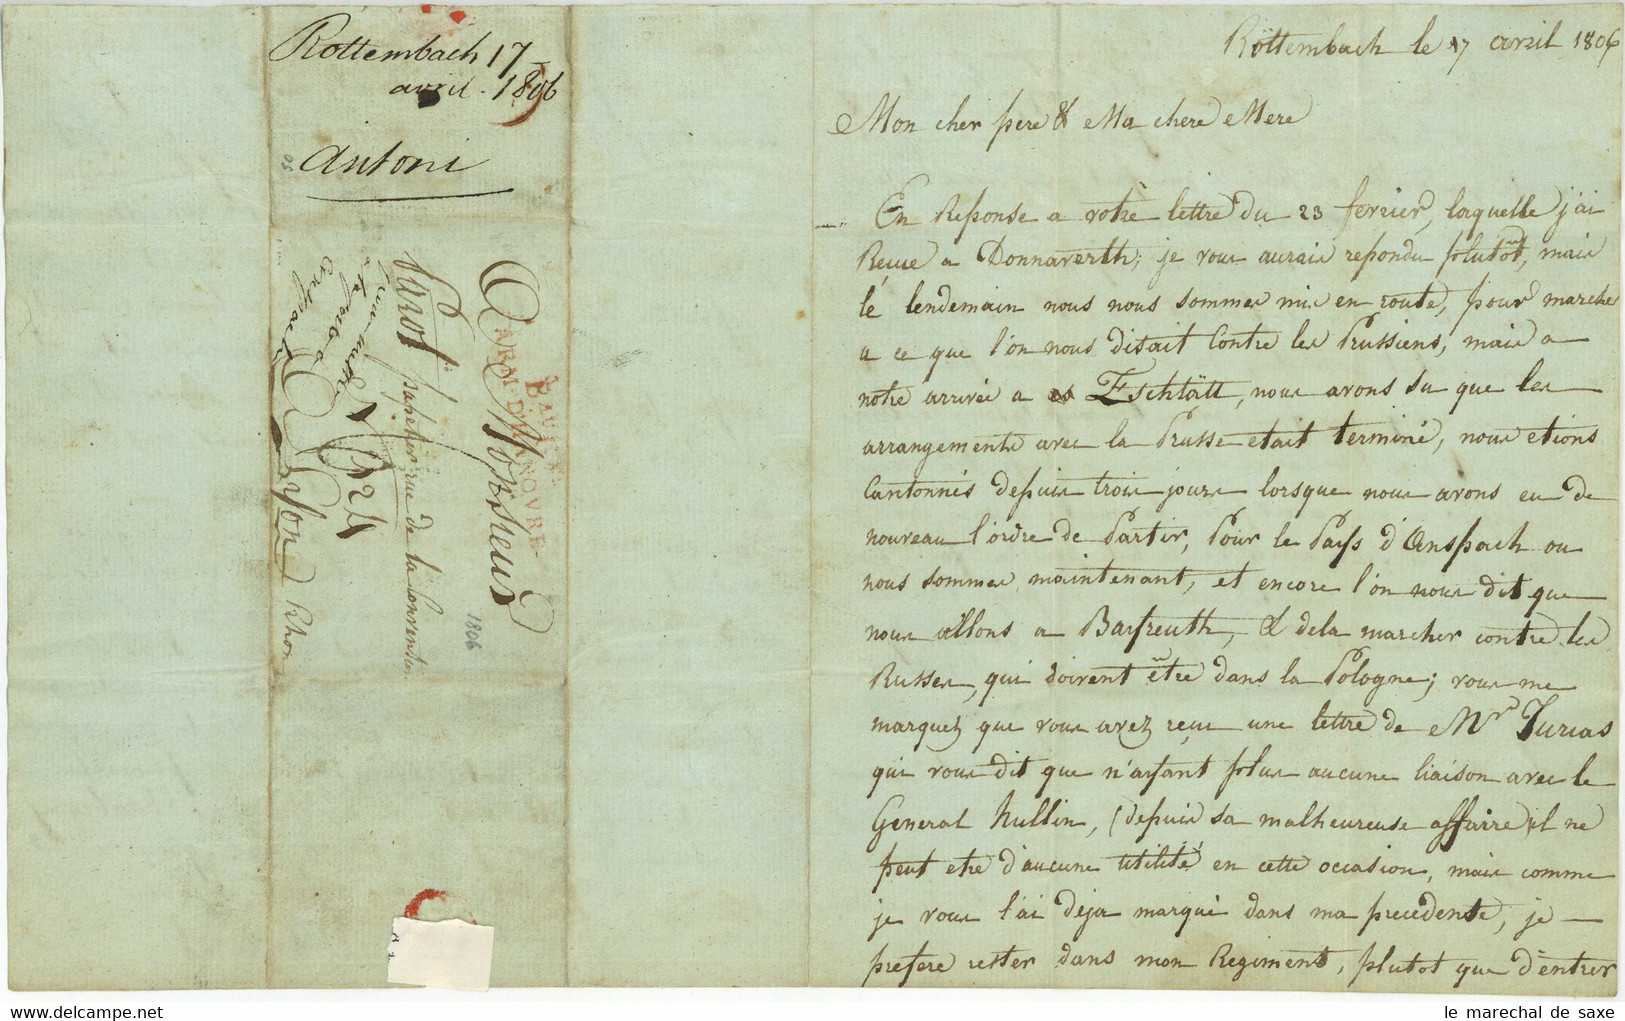 Rottembach 17
avril - 1806
Antoni
BAVIERE
ARM. D'HANOVRE
A Monsieur
papetier rue de la Convention
Lyon Rhone
1806
Rottembach le 17 avril 1806
Mon cher pere & Ma chere Mere
En Reponse a votre lettre du 23 fevrier, laquelle j'ai
Reçue a Donnaverth; je vous aurais repondu plutôt, mais
le lendemain nous nous sommes mis en route, pour marcher
a ce que l'on nous disait Contre les Prussiens, mais a
notre arrivée a Eschtätt, nous avons su que les
arrangements avec la Prusse etait terminé, nous etions
Cantonnés depuis trois jours lorsque nous avons eu de
nouveau l'ordre de Partir, Pour le Pays d'Anspach ou
nous sommes maintenant, et encore l'on nous dit que
nous allons a Bayreuth, & dela marcher contre les
Russes, qui doivent être dans la Pologne; vous me
marquez que vous avez reçue une lettre de Mr
qui vous dit que n'ayant plus aucune liaison avec le
General Hullin, (depuis sa malheureuse affaire) il ne
peut etre d'aucune utilité en cette occasion, mais comme
je vous l'ai deja marqué dans ma precedente, je
prefere rester dans mon Regiment, plutot que d'entrer
le marechal de saxe